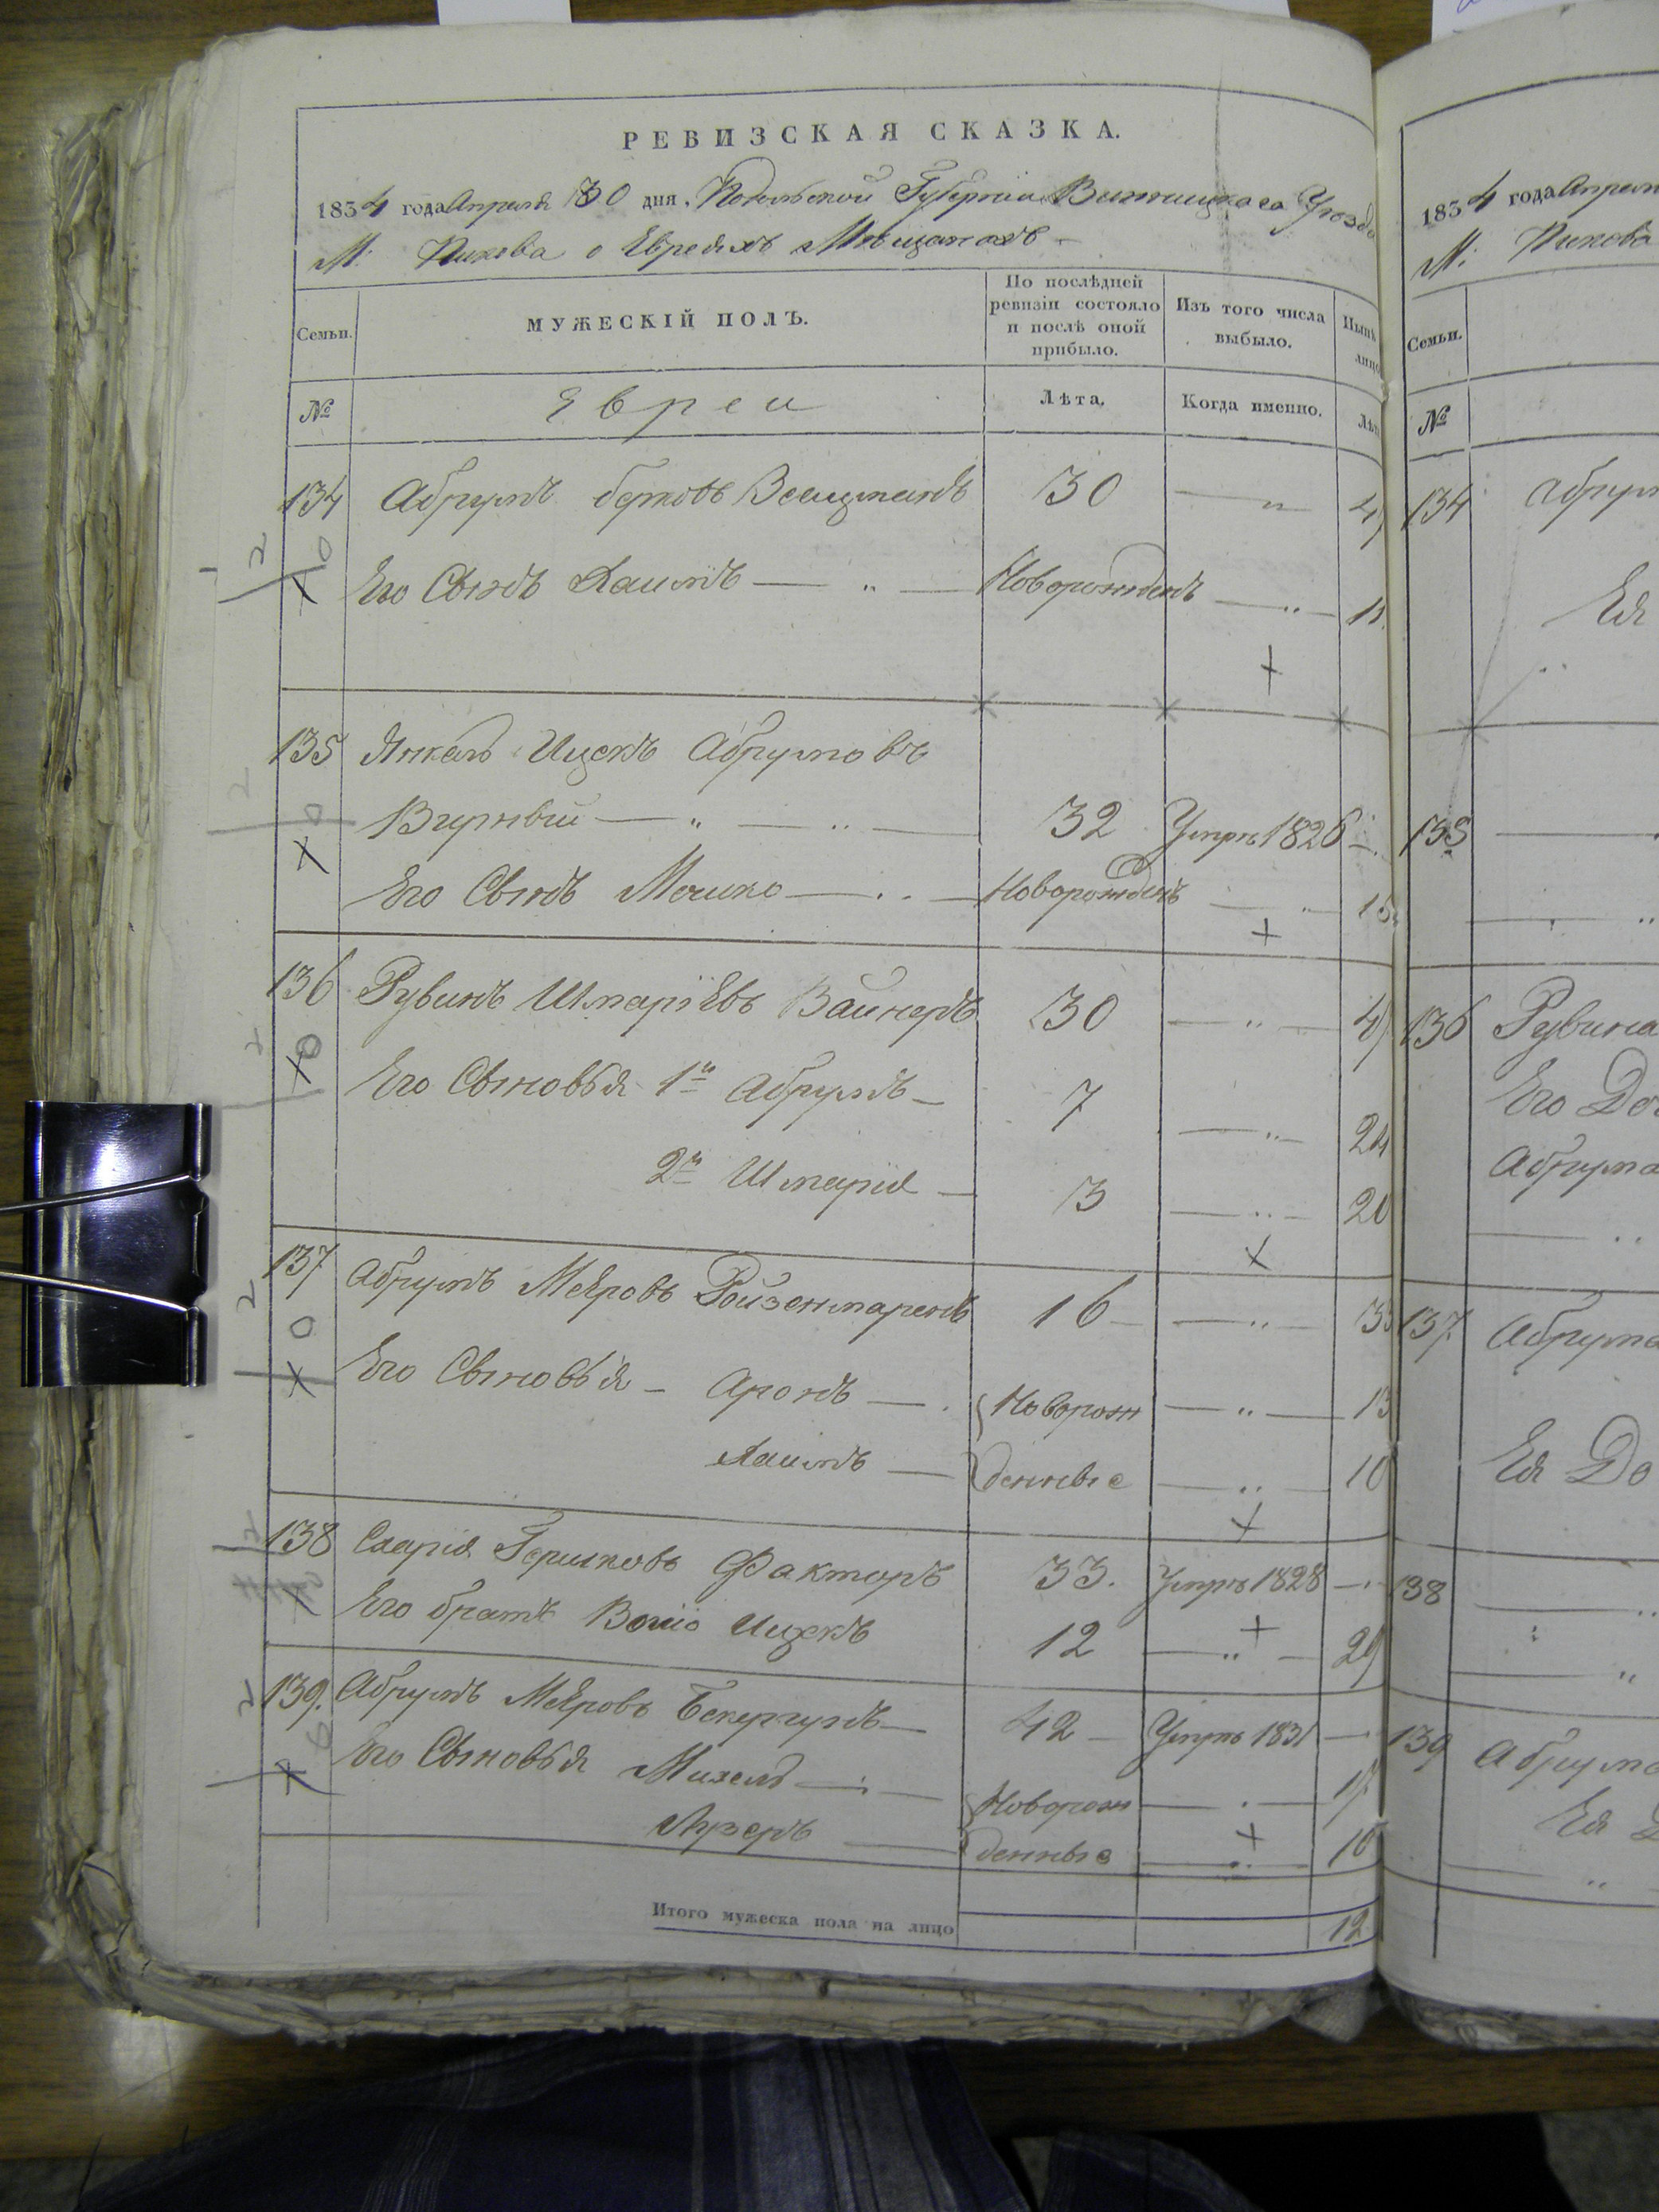 РЕВИЗСКАЯ СКАЗКА.
1834 года Апреля 30 дня, Подольской Губернии Винницкаго Уезда
М: Пикова о Евреяхъ Мещанахъ
Семьи.
МУЖЕСКІЙ ПОЛЪ.
По послѣдней ревизіи состояло и послѣ оной прибыло.
Изъ того числа выбыло.
№
Евреи
Лѣта.
Когда именно.
134 Абрумъ Берковъ 30 — " —
Его Сынъ Хаимъ — " — Новорожденъ — " — 11
135 Янкель Ицекъ Абрумовъ
— " — " — 32 Умръ 1826 —
Его Сынъ Мошко — Новорожденъ — " — 15
136 Рувинъ Шмаріевъ Вайнеръ 30 — " — 47
Его Сыновья 1й Абрумъ — 7 — " — 24
2й Шмарія — 3 — " — 20
137 Абрумъ Меяровъ 16 — " — 33
Его Сыновья — Аронъ — Новорож — " — 13
Хаимъ — денные — " — 10
138 Гершковъ Факторъ 33. Умръ 1828 —
Его братъ Ицекъ 12 — " — 29
139. Абрумъ Меяровъ 42 — Умръ 1831 —
Его Сыновья Михель — Новорож — 17
Лузеръ — денные — " — 10
Итого мужеска пола на лицо 12
1834 года Апреля
М: Пикова
Семьи.
№
134 Абрум
Ея
135
136 Рувина
Его До
Абрума
137 Абрума
Ея До
138
139 Абрума
Ея